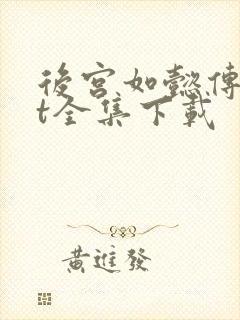 後宮如懿傳
t全集下載
黃進發